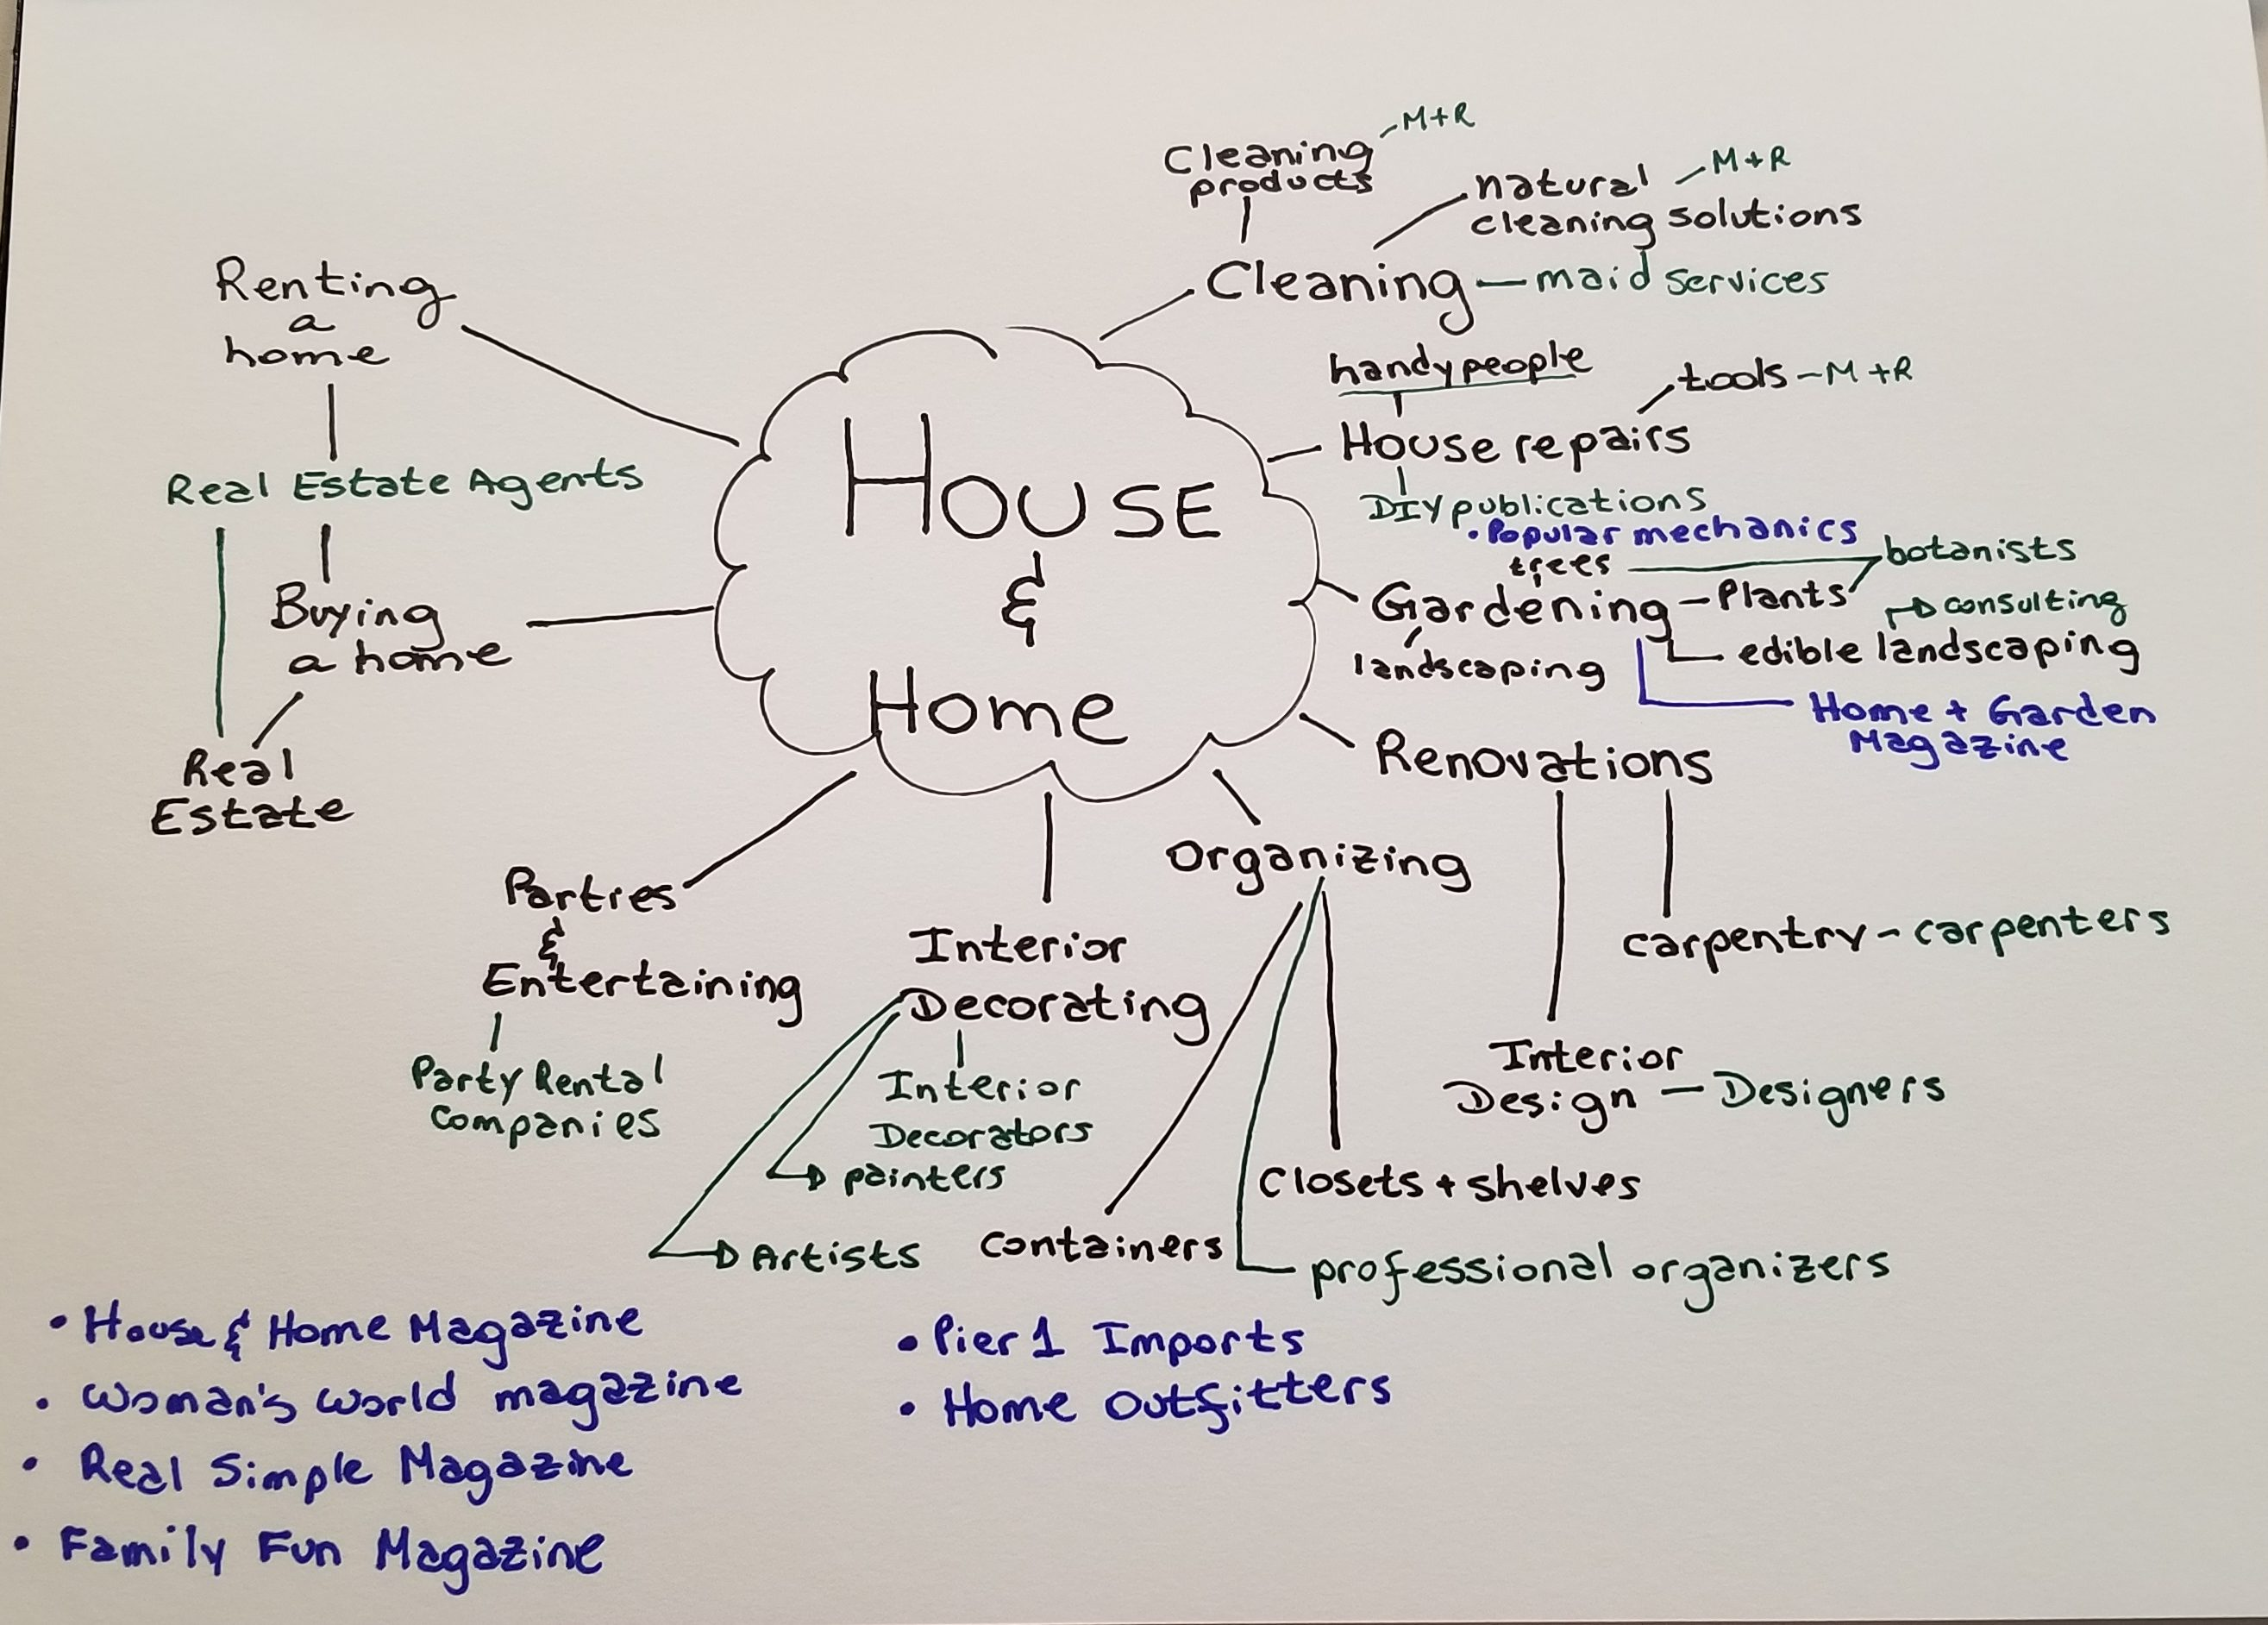 House
&
Home
Renting
a
home
Real Estate Agents
Buying
a home
Real
Estate
Cleaning
products
-M+R
natural
cleaning solutions
-M+R
Cleaning - maid services
handypeople
tools - M+R
House repairs
DIY publications
• Popular mechanics
trees
botanists
Gardening - Plants
consulting
landscaping
edible landscaping
Home + Garden
Magazine
Renovations
carpentry - carpenters
Interior
Design - Designers
Organizing
Closets + shelves
containers
professional organizers
Interior
Decorating
Interior
Decorators
painters
Artists
Parties
&
Entertaining
Party Rental
Companies
• House & Home Magazine
• Woman's World magazine
• Real Simple Magazine
• Family Fun Magazine
• Pier 1 Imports
• Home Outfitters